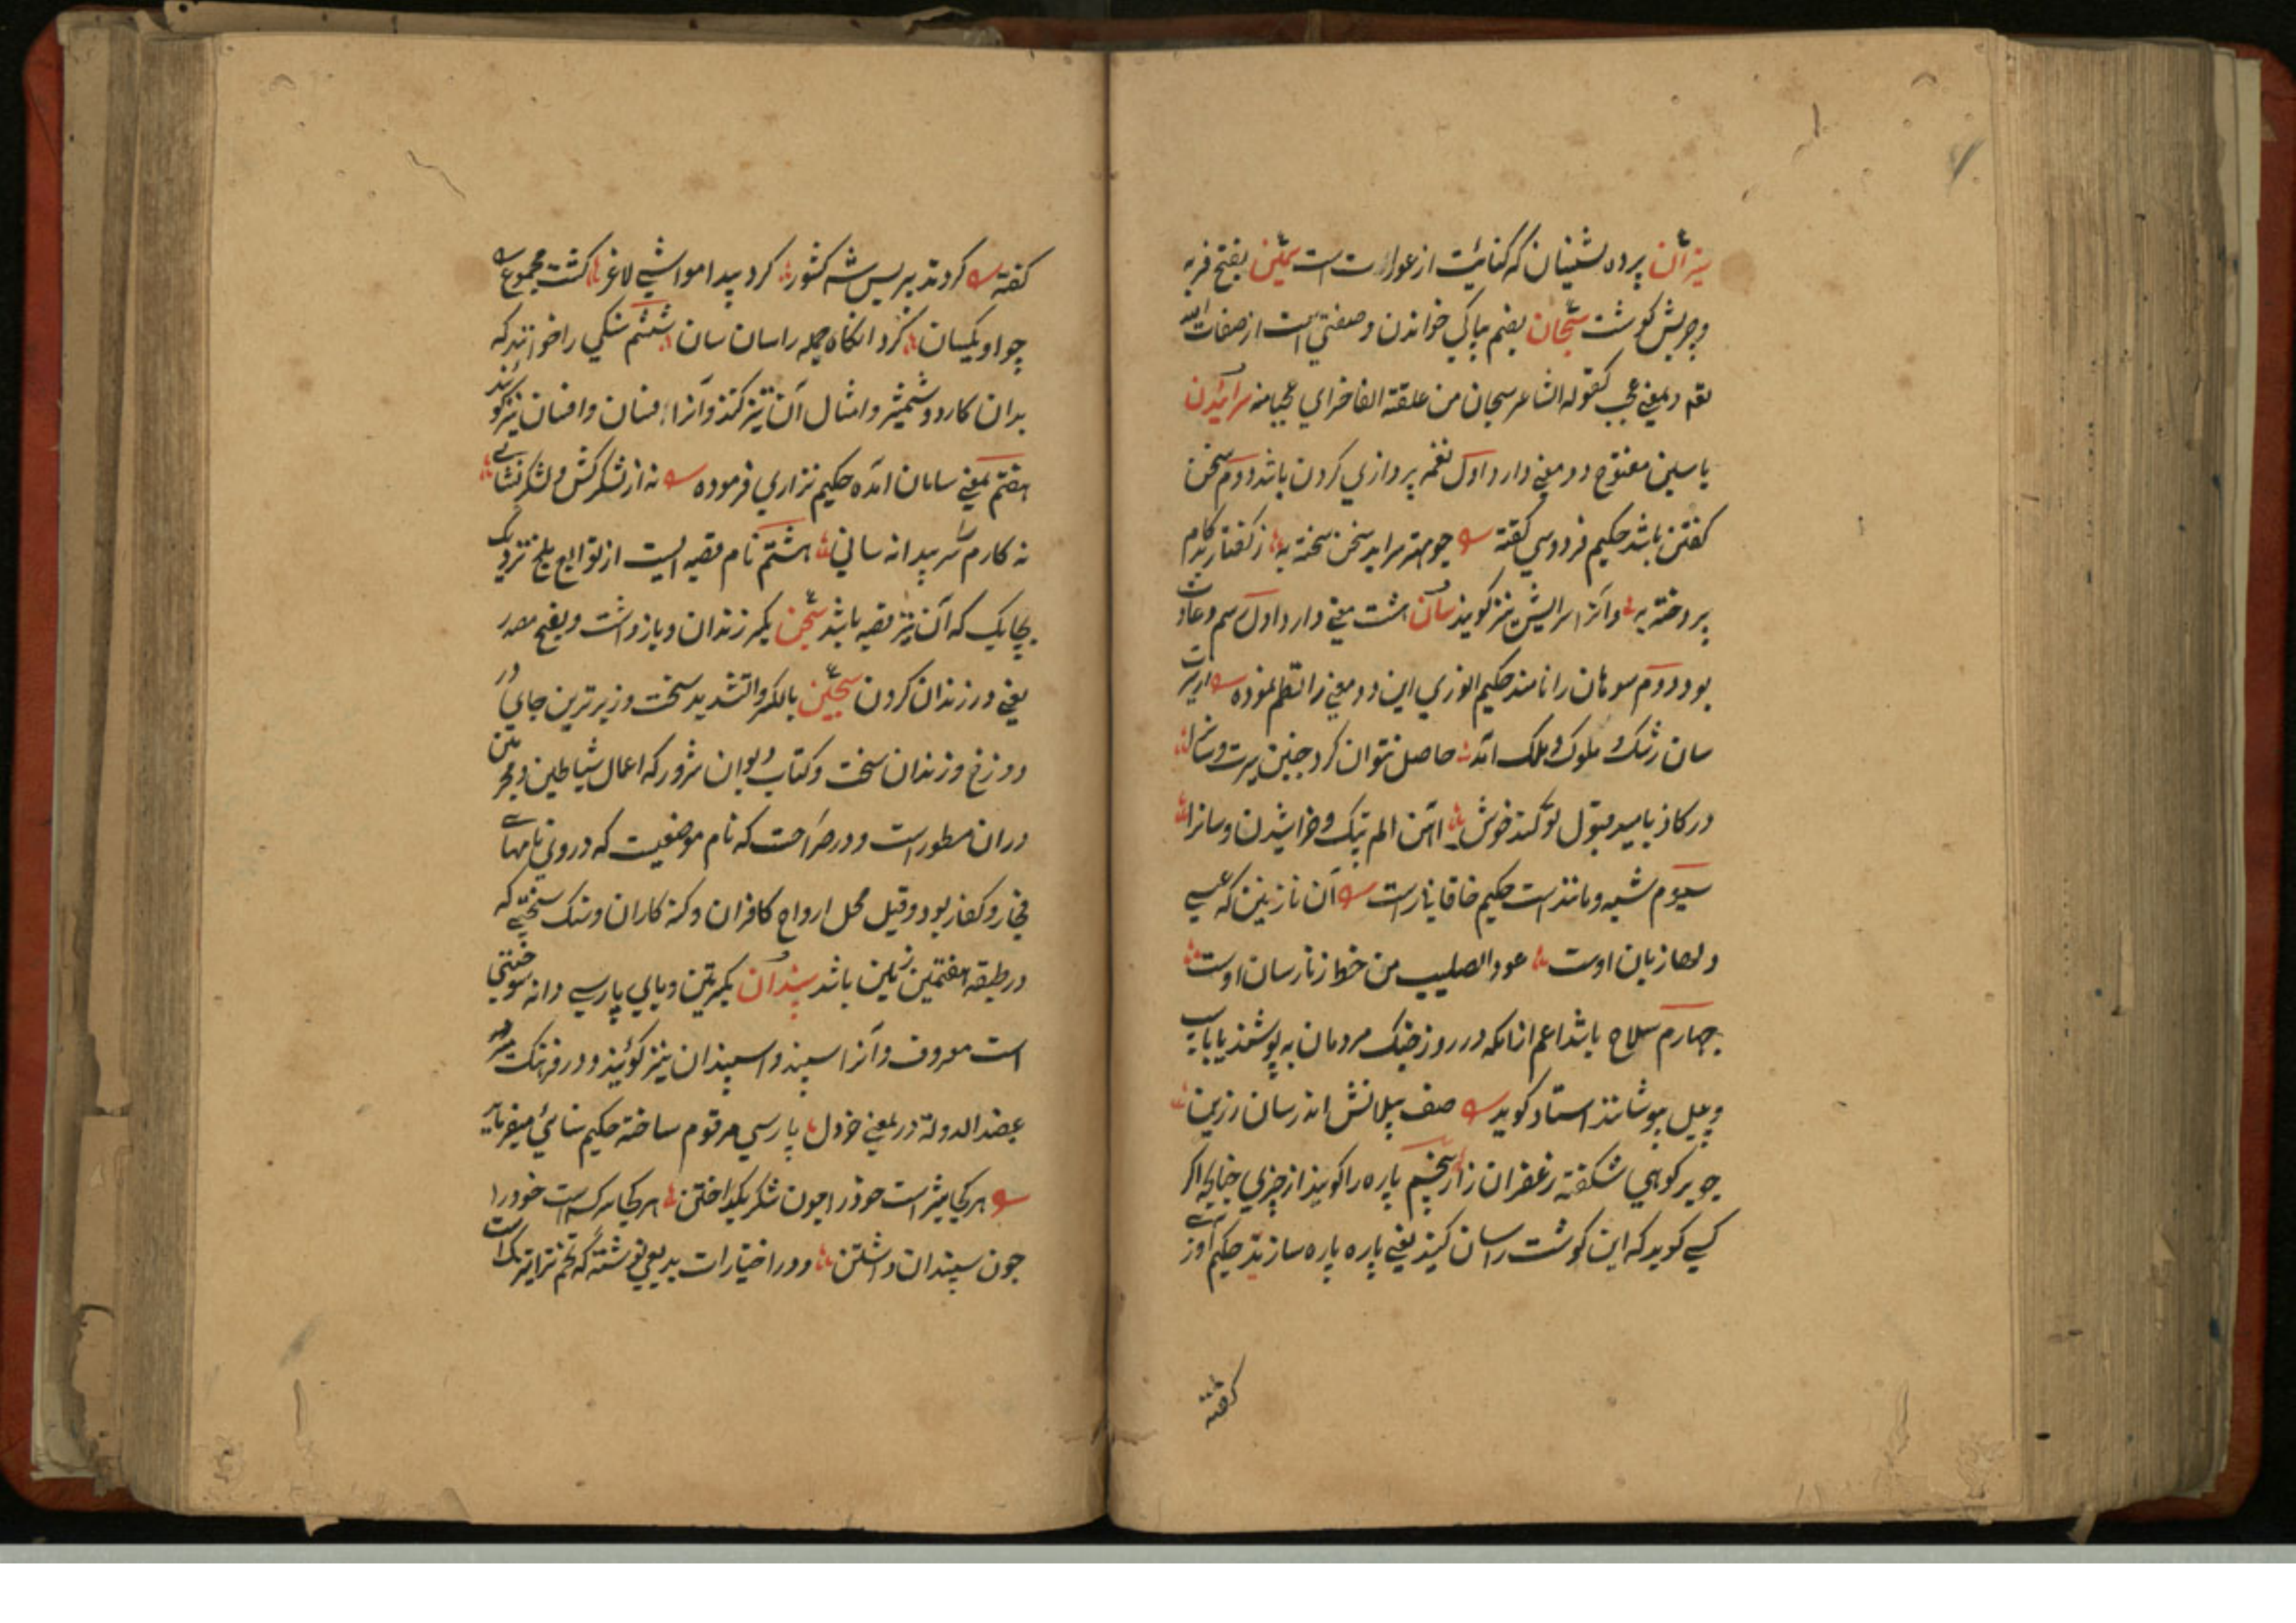 پرده نشینان که کنایت از عورات است سمین بفتح فربه
و چربش گوشت سبحان بضم بپاکی خواندن و صفتی است از صفات الله
و بمعنی عجب کقوله الشاعر سبحان من علقمة الفاخر ای عجبا منه سرائیدن
با سین مفتوح دو معنی دارد اول نغمه پردازی کردن باشد دوم سخن
کفتن باشد حکیم فردوسی کفته چو مهتر سراید سخن سخته به ز کفتار بد کام
پردخته به و آنرا سرایش نیز کویند سان هشت معنی دارد اول رسم و عادت
بود دوم سوهان را نامند حکیم انوری این دو معنی را نظم نموده
سان رشک ملوک و ملک آمد حاصل نتوان کرد چنین سیرت و سان
در کاز بامید قبول تو کند خوش آهن الم پتک و خراشیدن و سانرا
سیوم شبه و مانند است حکیم خاقانی راست آن نازنین که عیسی
دلها زبان اوست عود الصلیب من خط زنار سان اوست
چهارم سلاح باشد اعم از انکه در روز جنک مردمان بپوشند یا باسپ
و پیل بپوشانند استاد کوید صف پیلانش اندر سان زرین
چو بر کوهی شکفته زعفران زار پنجم پاره را کویند از چیزی چنانچه اکر
کسی کوید که این کوشت را سان کنید یعنی پاره پاره سازید حکیم
کفته
کفته کردند بر پس شه کشور کرد پیدا مواشی لاغر کشت مجموع
چو او یکسان کرد انکاه جمله را سان سان ششم سنکی را خوانند که
بدان کارد و شمشیر و امثال آن تیز کنند و آنرا فسان و افسان نیز کویند
هفتم بمعنی سامان آمده حکیم نزاری فرموده نه از لشکرکش و لشکر نشانی
نه کارم سر پیدا نه سانی هشتم نام قصبه ایست از توابع بلخ نزدیک
بچاریک که آن نیز قصبه باشد سجن بکسر زندان و بازداشت و بفتح مصدر
یعنی در زندان کردن سجین بالکسر و التشدید سخت و زیرترین جای در
دوزخ و زندان سخت و کتاب دیوان شرور که اعمال شیاطین و مجرمین
دران مسطور است و در صراحت که نام موضعیست که در وی نامهای
فجار و کفار بود و قیل محل ارواح کافران و کنه کاران و سنک سختی که
در طبقه هفتمین زمین باشد سپندان بکسرتین و بای پارسی دانه سوختنی
است معروف و آنرا سپند و اسپندان نیز کویند و در فرهنک
عضد الدوله در بمعنی خردل پارسی مرقوم ساخته حکیم سنائی میفرماید
هر کجا شیر است خود را چون شکر بکداختن هر کجا سرکه است خود را
چون سپندان داشتن و در اختیارات بدیعی نوشته که تخم ترا تیزک است